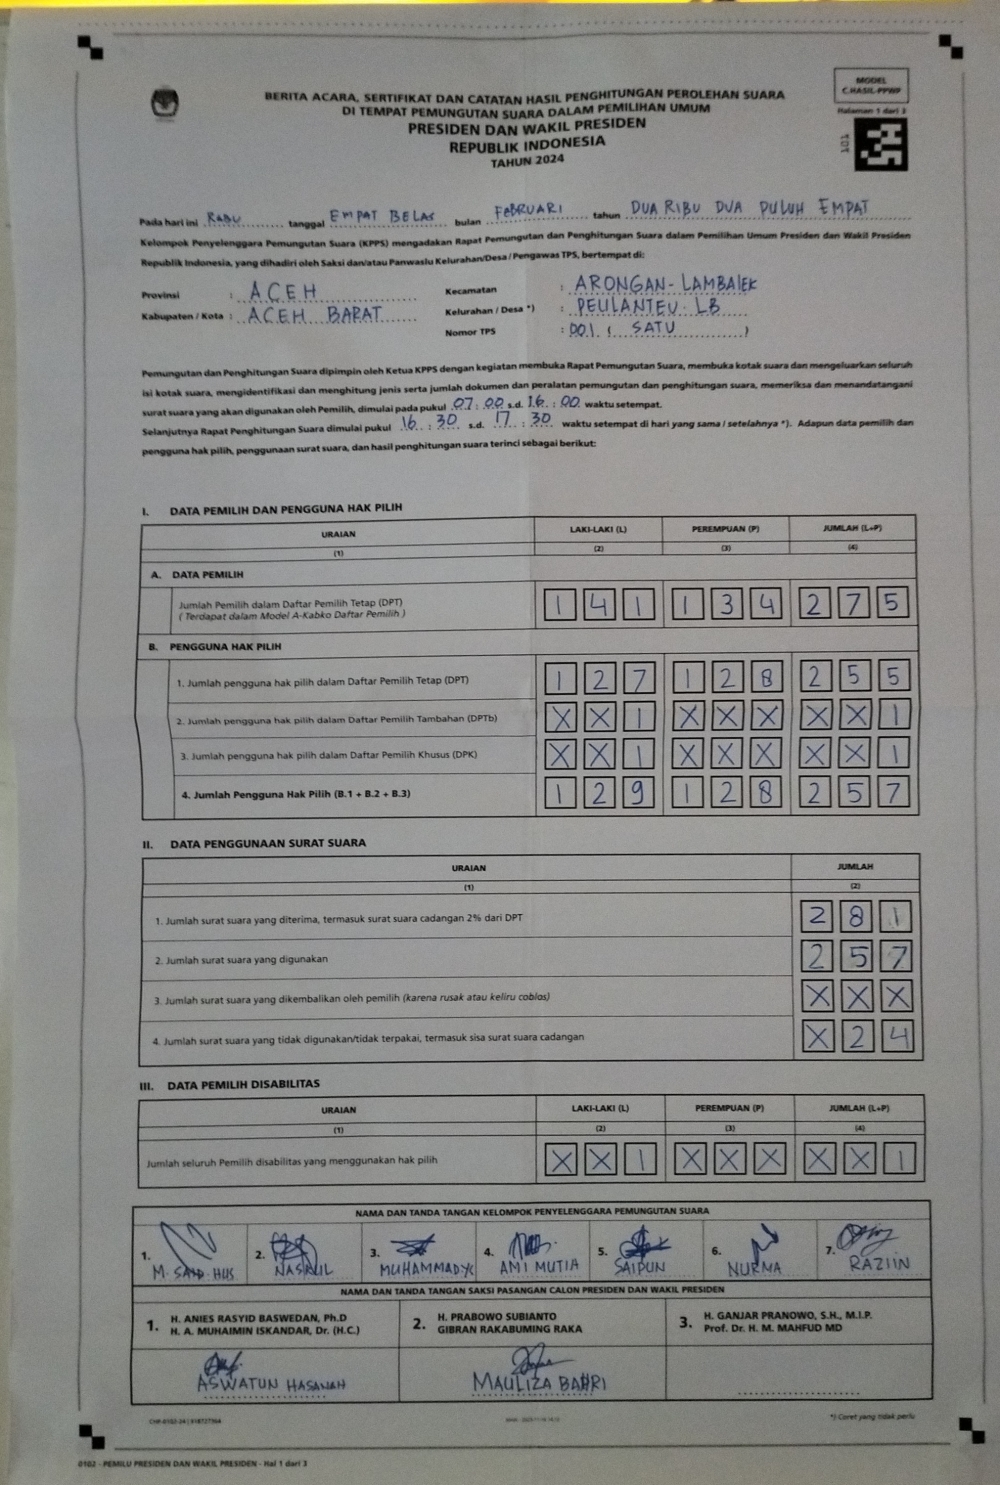 MODEL
C.HASIL-PPWP
Halaman 1 dari 3
101
BERITA ACARA, SERTIFIKAT DAN CATATAN HASIL PENGHITUNGAN PEROLEHAN SUARA
DI TEMPAT PEMUNGUTAN SUARA DALAM PEMILIHAN UMUM
PRESIDEN DAN WAKIL PRESIDEN
REPUBLIK INDONESIA
TAHUN 2024
Pada hari ini RABU tanggal EMPAT BELAS bulan FEBRUARI tahun DUA RIBU DUA PULUH EMPAT
Kelompok Penyelenggara Pemungutan Suara (KPPS) mengadakan Rapat Pemungutan dan Penghitungan Suara dalam Pemilihan Umum Presiden dan Wakil Presiden
Republik Indonesia, yang dihadiri oleh Saksi dan/atau Panwaslu Kelurahan/Desa / Pengawas TPS, bertempat di:
Provinsi : ACEH Kecamatan : ARONGAN-LAMBALEK
Kabupaten / Kota : ACEH BARAT Kelurahan / Desa *) : PEULANTEU LB
Nomor TPS : 001 ( SATU )
Pemungutan dan Penghitungan Suara dipimpin oleh Ketua KPPS dengan kegiatan membuka Rapat Pemungutan Suara, membuka kotak suara dan mengeluarkan seluruh
isi kotak suara, mengidentifikasi dan menghitung jenis serta jumlah dokumen dan peralatan pemungutan dan penghitungan suara, memeriksa dan menandatangani
surat suara yang akan digunakan oleh Pemilih, dimulai pada pukul 07 : 00 s.d. 16 : 00 waktu setempat.
Selanjutnya Rapat Penghitungan Suara dimulai pukul 16 : 30 s.d. 17 : 30 waktu setempat di hari yang sama / setelahnya *). Adapun data pemilih dan
pengguna hak pilih, penggunaan surat suara, dan hasil penghitungan suara terinci sebagai berikut:
I. DATA PEMILIH DAN PENGGUNA HAK PILIH
URAIAN LAKI-LAKI (L) PEREMPUAN (P) JUMLAH (L+P)
(1) (2) (3) (4)
A. DATA PEMILIH
Jumlah Pemilih dalam Daftar Pemilih Tetap (DPT) 1 4 1 1 3 4 2 7 5
( Terdapat dalam Model A-Kabko Daftar Pemilih )
B. PENGGUNA HAK PILIH
1. Jumlah pengguna hak pilih dalam Daftar Pemilih Tetap (DPT) 1 2 7 1 2 8 2 5 5
2. Jumlah pengguna hak pilih dalam Daftar Pemilih Tambahan (DPTb) X X 1 X X X X X 1
3. Jumlah pengguna hak pilih dalam Daftar Pemilih Khusus (DPK) X X 1 X X X X X 1
4. Jumlah Pengguna Hak Pilih (B.1 + B.2 + B.3) 1 2 9 1 2 8 2 5 7
II. DATA PENGGUNAAN SURAT SUARA
URAIAN JUMLAH
(1) (2)
1. Jumlah surat suara yang diterima, termasuk surat suara cadangan 2% dari DPT 2 8 1
2. Jumlah surat suara yang digunakan 2 5 7
3. Jumlah surat suara yang dikembalikan oleh pemilih (karena rusak atau keliru coblos) X X X
4. Jumlah surat suara yang tidak digunakan/tidak terpakai, termasuk sisa surat suara cadangan X 2 4
III. DATA PEMILIH DISABILITAS
URAIAN LAKI-LAKI (L) PEREMPUAN (P) JUMLAH (L+P)
(1) (2) (3) (4)
Jumlah seluruh Pemilih disabilitas yang menggunakan hak pilih X X 1 X X X X X 1
NAMA DAN TANDA TANGAN KELOMPOK PENYELENGGARA PEMUNGUTAN SUARA
1. 2. 3. 4. 5. 6. 7.
M. SAID HUS NASRUL MUHAMMAD YC AMI MUTIA SAIPUN NURMA RAZIIN
NAMA DAN TANDA TANGAN SAKSI PASANGAN CALON PRESIDEN DAN WAKIL PRESIDEN
1. H. ANIES RASYID BASWEDAN, Ph.D
H. A. MUHAIMIN ISKANDAR, Dr. (H.C.)
2. H. PRABOWO SUBIANTO
GIBRAN RAKABUMING RAKA
3. H. GANJAR PRANOWO, S.H., M.I.P.
Prof. Dr. H. M. MAHFUD MD
ASWATUN HASANAH MAULIZA BAHRI
*) Coret yang tidak perlu
0102 - PEMILU PRESIDEN DAN WAKIL PRESIDEN - Hal 1 dari 3